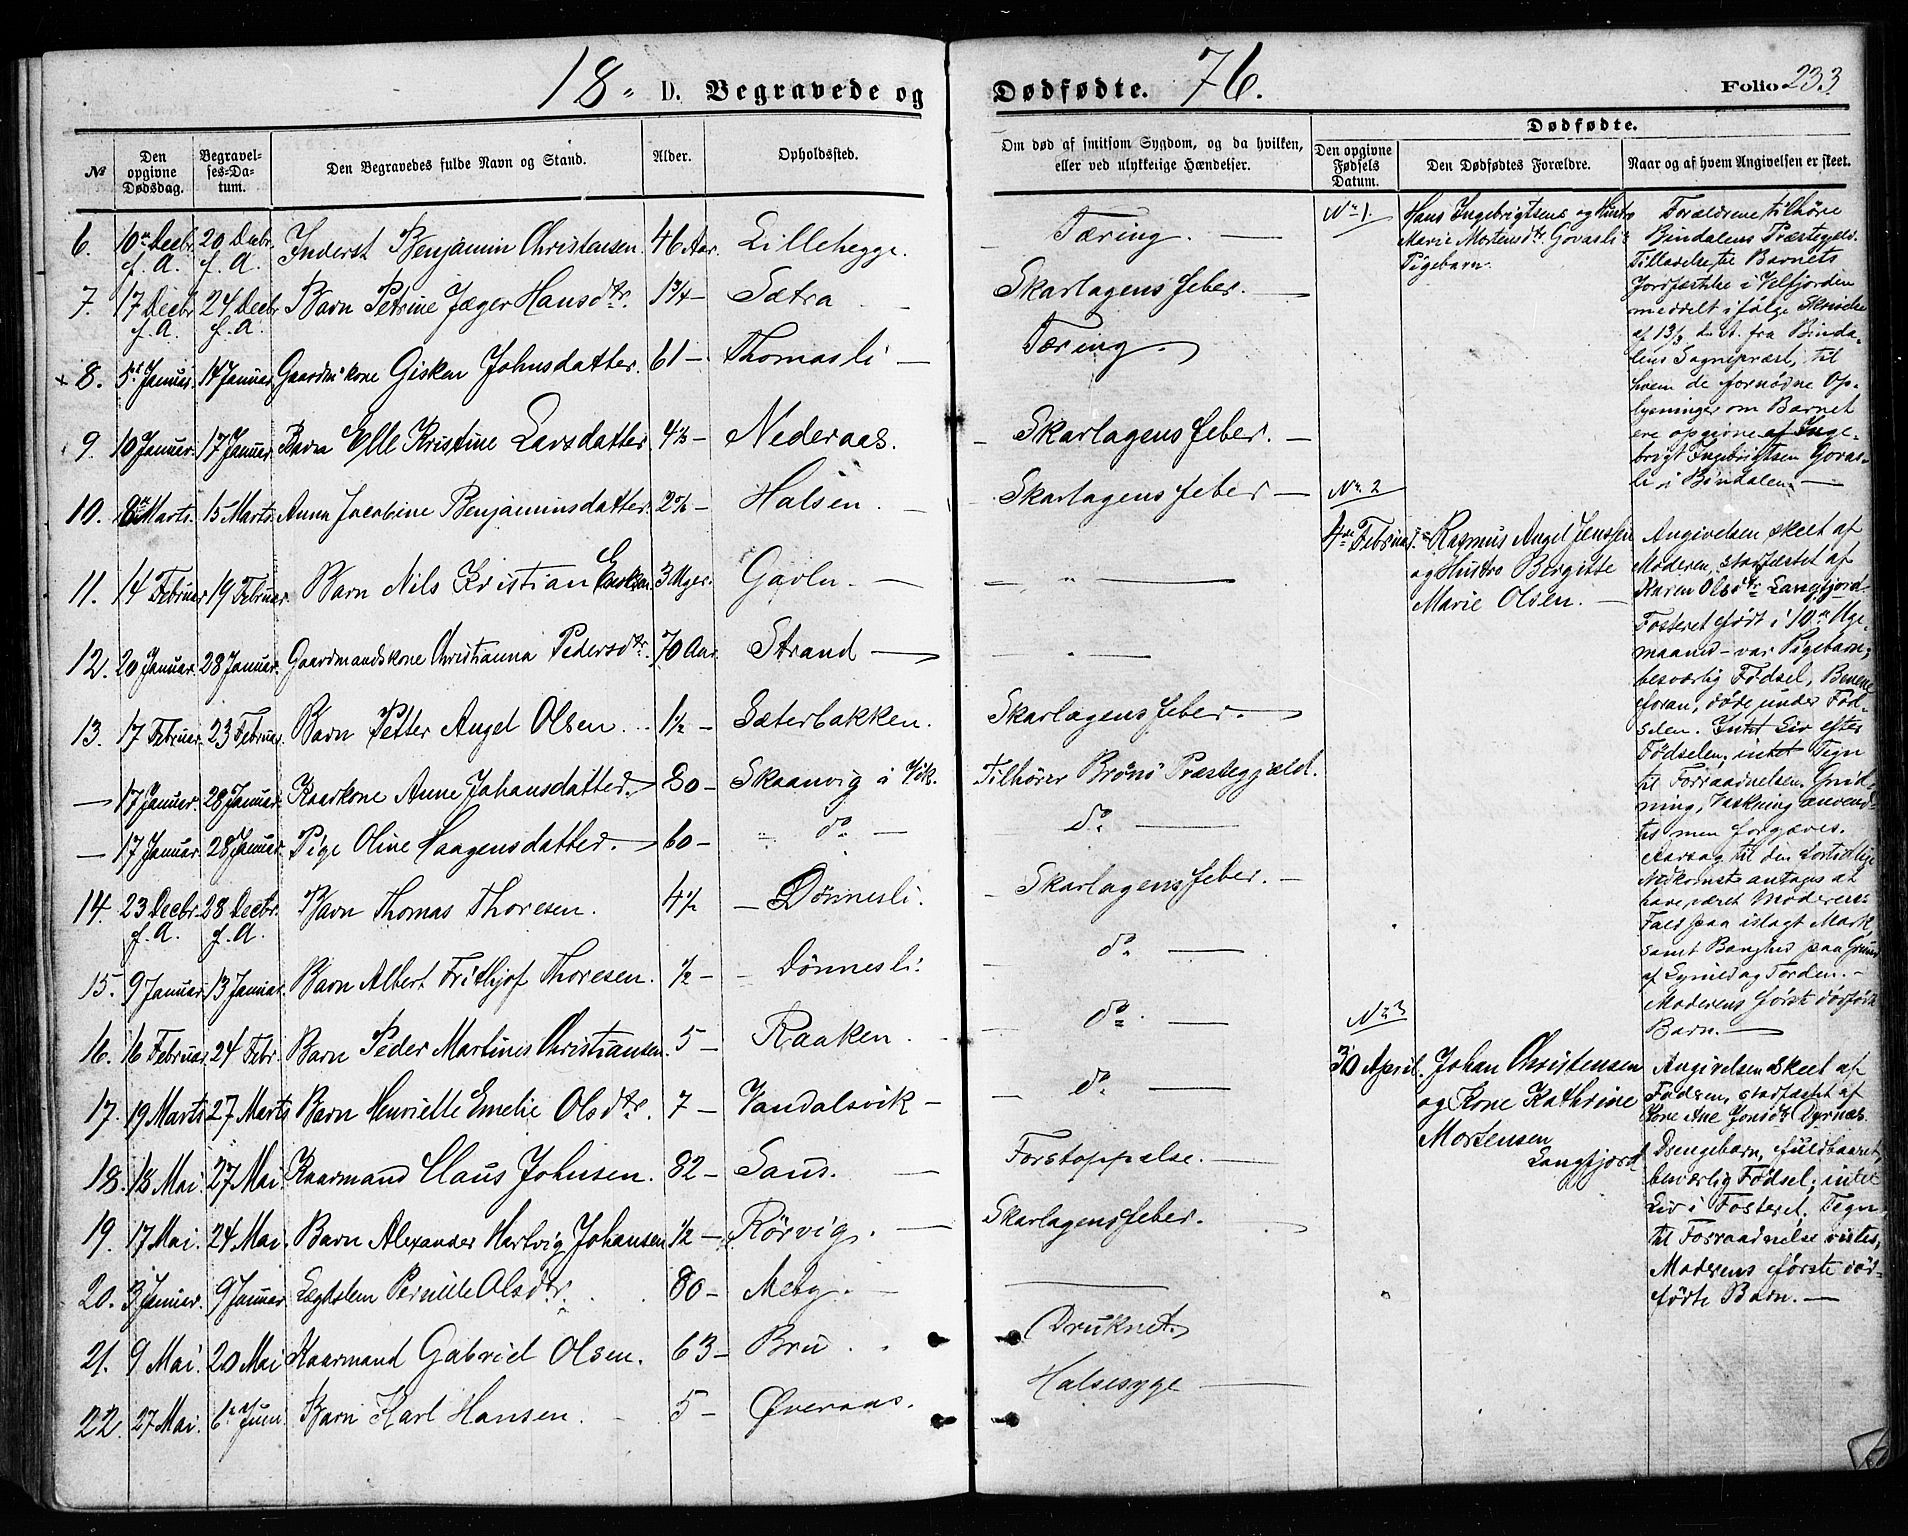 18 D. Begravede og Dødfødte. 76. Folio 233
№ Den opgivne Dødsdag. Begravelses-Datum. Den Begravedes fulde Navn og Stand. Alder. Opholdssted. Om død af smitsom Sygdom, og da hvilken, eller ved ulykkelige Hændelser.
Dødfødte.
Den opgivne Fødsels Datum. Den Dødfødtes Forældre. Naar og af hvem Angivelsen er skeet.
6. 10de Decbr f.A. 20 Decbr f.A. Inderst Benjamin Christensen. 46 Aar. Lillehegge. Tæring.
7. 17 Decbr f.A. 24 Decbr f.A. Barn Petrine Jæger Hansdtr. 1¾ - Sætra Skarlagensfeber.
8. 5te Januar 14 Januar Gaardm.kone Gisken Johnsdatter. 61 - Thomasli Tæring.
9. 10 Januar. 17 Januar. Barn Elle Kristine Larsdatter. 4½ - Nederaas. Skarlagensfeber.
10. 8de Marts. 15 Marts. Anna Jacobine Benjaminsdatter. Halsen. Skarlagensfeber
11. 14 Februar 19 Februar. Barn Nils Kristian 3 Uger. Gavln. "
12. 20 Januar. 28 Januar. Gaardmandskone Christianna Pedersdtr. 70 Aar. Strand "
13. 17 Februar. 23 Februar. Barn Petter Angel Olsen 1½ - Sæterbakken. Skarlagensfeber.
— 17 Januar. 28 Januar. Kaarkone Anne Johansdatter. 80 - Skaanvig i Vik. Tilhører Brønø Præstegjæld.
— 17 Januar. 28 Januar. Pige Oline Haagensdatter. 60 - do do
14. 23 Decbr. f.A. 28 Decbr. f.A. Barn Thomas Thoresen. 4½ Dønnesli. Skarlagensfeber.
15. 9 Januar. 13 Januar. Barn Albert Frithjof Thoresen. ½ - Dønnesli. do
16. 16 Februar 24 Febr. Barn Peder Martines Christiansen. 5 - Kraaken. do
17. 19 Marts 27 Marts Barn Henriette Emelie Olsdtr. 7 - Vandalsvik do
18. 18 Mai. 27 Mai. Kaarmand Claus Johnsen. 82 - Saus. Forstoppelse.
19. 17 Mai. 24 Mai. Barn Alexander Hartvig Johansen ½ - Rørvig. Skarlagensfeber.
20. 3 Januar. 9 Januar. Lægdslem Pernille Olsdtr. 80 - Meby.
21. 9 Mai. 20 Mai Kaarmand Gabriel Olsen. 63 - Bru Druknet.
22. 27 Mai. 6te Juni. Barn Karl Hansen. 5 - Øveraas. Halsesyge
No 1.
Hans Ingebrigtsens og Hustro
Marie Mortensdtr Govasli's
Pigebarn.
Forældrene tilhøre
Bindalens Præstegjeld.
Tilladelse til Barnets
Jordfæstelse i Velfjorden
meddelt ifølge Skrivelse
af 13/3 d. A. fra Binda-
lens Sognepræst, til
hvem de fornødne Op-
lysninger om Barnet
ere opgivne af Inge-
brigt Ingebrigtsen Govas-
li i Bindalen.
No 2
4de Februar. Rasmus Angel Jenssen
og Hustro Bergitte
Marie Olsen.
Angivelsen skeet af
Moderen, stadfæstet af
Karen Olsdtr Langfjord.
Fosteret født i 10de Uge-
maaned - var Pigebarn,
besværlig Fødsel, Benene
foran, døde under Fød-
selen. Intet Liv efter
Fødselen, intet Tegn
til Forraadnelsen. Gnid-
ning, Vaskning anvend-
tes men forgjæves.
Aarsag til den fortidlige
Nedkomst antages at
have været Moderens
Fald paa islagt Mark
samt Banghed paa Grund
af Lynild og Torden.
Moderens første dødfødte
Barn.
No 3
30 April. Johan Christensen
og Kone Kathrine
Mortensen
Langfjord
Angivelsen skeet af
Faderen, stadfæstet af
Kone Ane Jonsdtr Dyrnæs.
Drengebarn, fuldbaaret,
besværlig Fødsel; intet
Liv i Fosteret. Tegn
til Forraadnelse vistes,
Moderens første død-
fødte Barn.